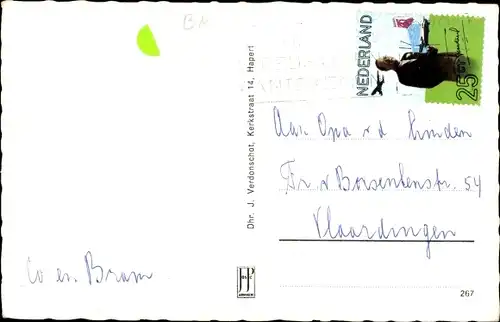 NEDERLAND
25
Dhr. J. Verdonschot, Kerkstraat 14, Hapert
Aan Opa v d Linden
Fr. v Borselenstr. 54
Vlaardingen
Co en Bram
JP
267